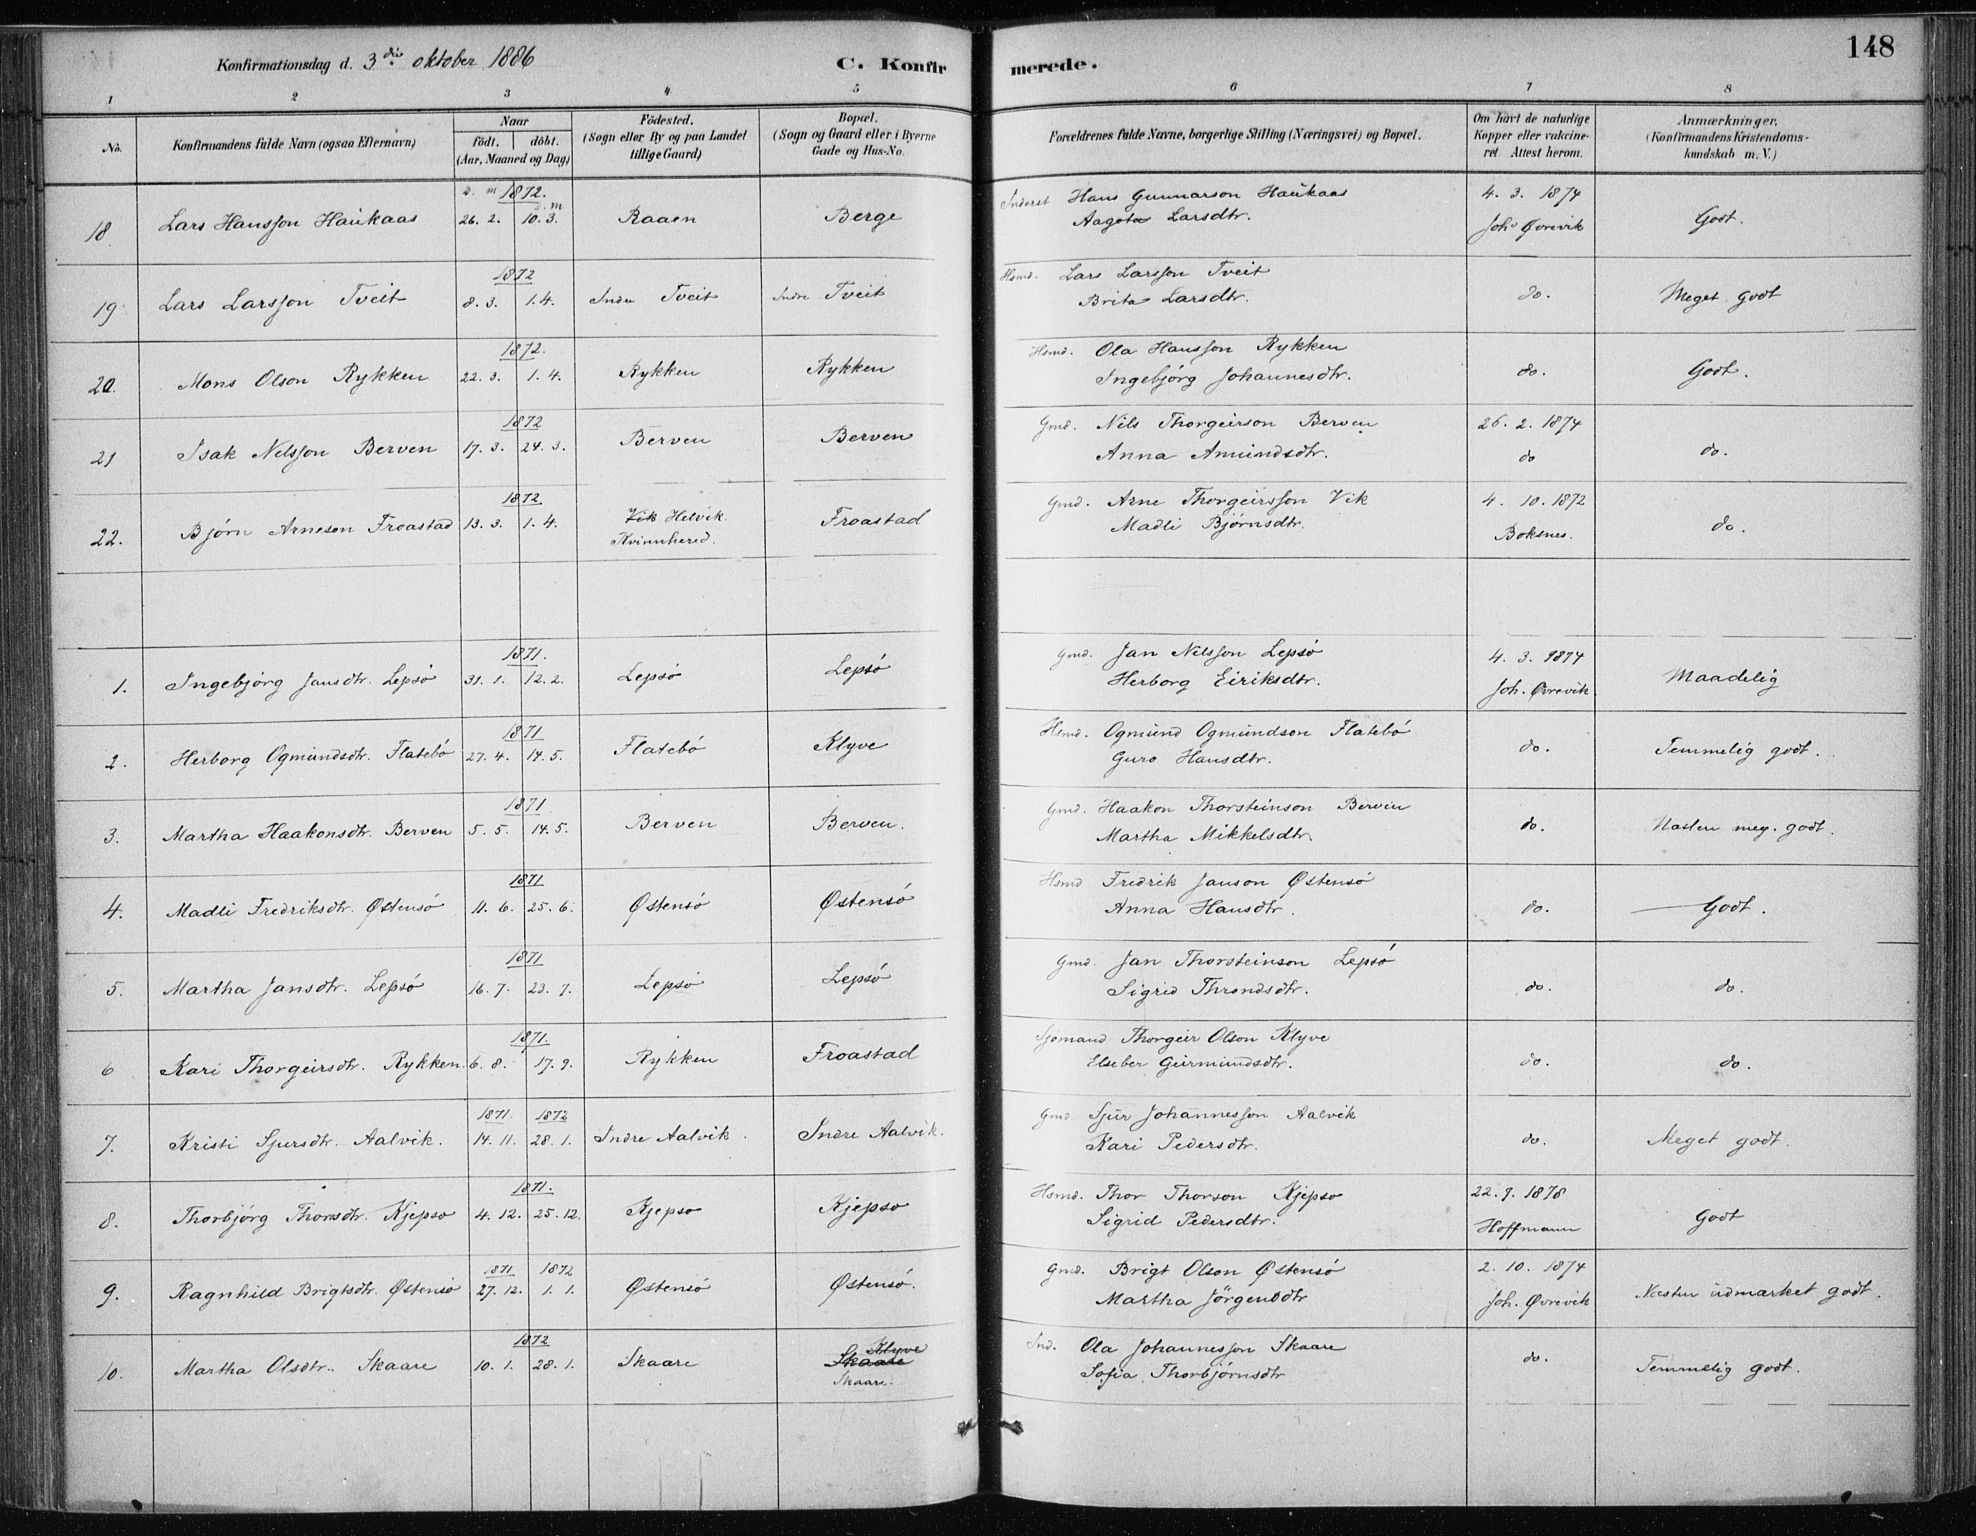 148
Konfirmationsdag d. 3die oktober 1886
C. Konfirmerede.
1 2 3 4 5 6 7 8
No. | Konfirmandens fulde Navn (ogsaa Efternavn) | Naar födt. döbt. (Aar, Maaned og Dag) | Födested. (Sogn eller By og paa Landet tillige Gaard) | Bopæl. (Sogn og Gaard eller i Byerne Gade og Hus-No. | Forældrenes fulde Navne, borgerlige Stilling (Næringsvei) og Bopæl. | Om havt de naturlige Kopper eller vakcineret. Attest herom. | Anmærkninger, (Konfirmandens Kristendomskundskab m. V.)
D. m 1872. D. m
18 Lars Hansson Haukaas 26. 2. 10. 3. Raaen Berge Inderst Hans Gunnarson Haukaas 4. 3. 1874 Godt.
Aagota Larsdtr. Joh. Øvrevik
1872
19 Lars Larsson Tveit 8. 3. 1. 4. Indre Tveit Indre Tveit Hsmd. Lars Larsson Tveit do. Meget godt
Brita Larsdtr.
1872.
20. Mons Olson Rykken 22. 3. 1. 4. Rykken Rykken Hsmd. Ola Hansson Rykken do. Godt.
Ingebjórg Johannesdtr.
1872
21 Isak Nelsson Berven 17. 3. 24. 3. Berven Berven Gmd. Nils Thorgeirson Berven 26. 2. 1874 do.
Anna Amundsdtr. do
1872.
22. Bjórn Arneson Froastad 13. 3. 1. 4. Vik Helvik Froastad Gmd. Arne Thorgeirsson Vik 4. 10. 1872 do.
Kvinnhered. Madli Bjórnsdtr. Boksnes.
1871.
1. Ingebjórg Jansdtr. Lepsó 31. 1. 12. 2. Lepsó Lepsó Gmd. Jan Nelsson Lepsó 4. 3. 1874 Maadelig
Herborg Eiriksdtr. Joh. Øvrevik.
1871
2. Herborg Ogmundsdtr. Flatebó 27. 4. 14. 5. Flatebó Klyve Hsmd. Ogmund Ogmundson Flatebó do. Temmelig godt.
Guro Hansdtr.
1871
3. Martha Haakonsdtr. Berven 5. 5. 14. 5. Berven Berven. Gmd. Haakon Thorsteinson Berven do. Næsten meg. godt.
Martha Mikkelsdtr.
1871
4. Madli Fredriksdtr. Østensó 11. 6. 25. 6. Østensó Østensó Hsmd Fredrik Janson Østensó do. Godt.
Anna Hansdtr.
1871
5. Martha Jansdtr. Lepsó 16. 7. 23. 7. Lepsó Lepsó Gmd. Jan Thorsteinson Lepsó do. do.
Sigrid Throndsdtr.
1871.
6 Kari Thorgeirsdtr. Rykken. 6. 8. 17. 9. Rykken Froastad Sjómand Thorgeir Olson Klyve do. do.
Elseber Geirmundsdtr.
1871. 1872
7. Kristi Sjursdtr. Aalvik. 14. 11. 28. 1. Indre Aalvik. Indre Aalvik. Gmd. Sjur Johannesson Aalvik do. Meget godt.
Kari Pedersdtr.
1871.
8. Thorbjórg Thorsdtr. Kjepso 4. 12. 25. 12. Kjepso Kjepso Hsmd. Thor Thorson Kjepso 22. 9. 1878 Godt
Sigrid Pedersdtr. Hoffmann
1871. 1872
9. Ragnhild Brigtsdtr. Østensó 27. 12. 1. 1. Østensó Østensó. Gmd. Brigt Olson Østensó 2. 10. 1874 Næsten udmærket godt.
Martha Jörgensdtr Joh. Øvrevik
1872 Klyve
10. Martha Olsdtr. Skaare 10. 1. 28. 1. Skaare Skaare Ind. Ola Johannesson Skaare do. Temmelig godt.
Skaare. Sofia Thorbjórnsdtr